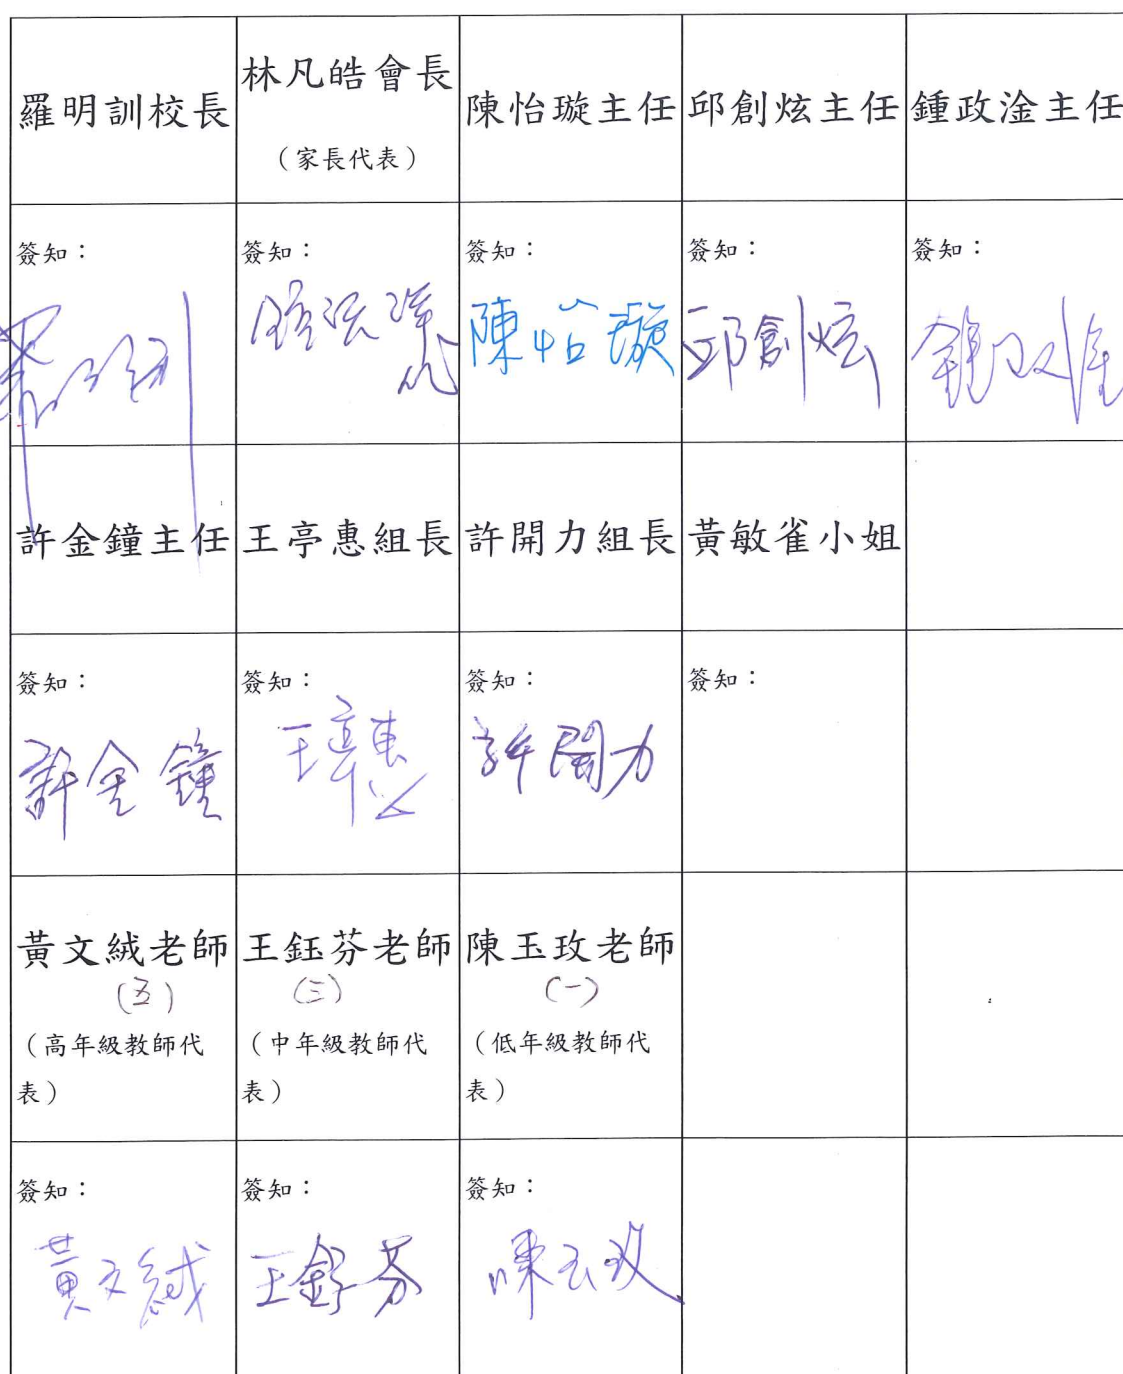 羅明訓校長
林凡皓會長
（家長代表）
陳怡璇主任
邱創炫主任
鍾政淦主任
簽知：
簽知：
簽知：
簽知：
簽知：
陳怡璇
邱創炫
許金鐘主任
王亭惠組長
許開力組長
黃敏雀小姐
簽知：
簽知：
簽知：
簽知：
許金鐘
許開力
黃文絨老師
(五)
（高年級教師代
表）
王鈺芬老師
(三)
（中年級教師代
表）
陳玉玫老師
(一)
（低年級教師代
表）
簽知：
簽知：
簽知：
黃文絨
王鈺芬
陳玉玫